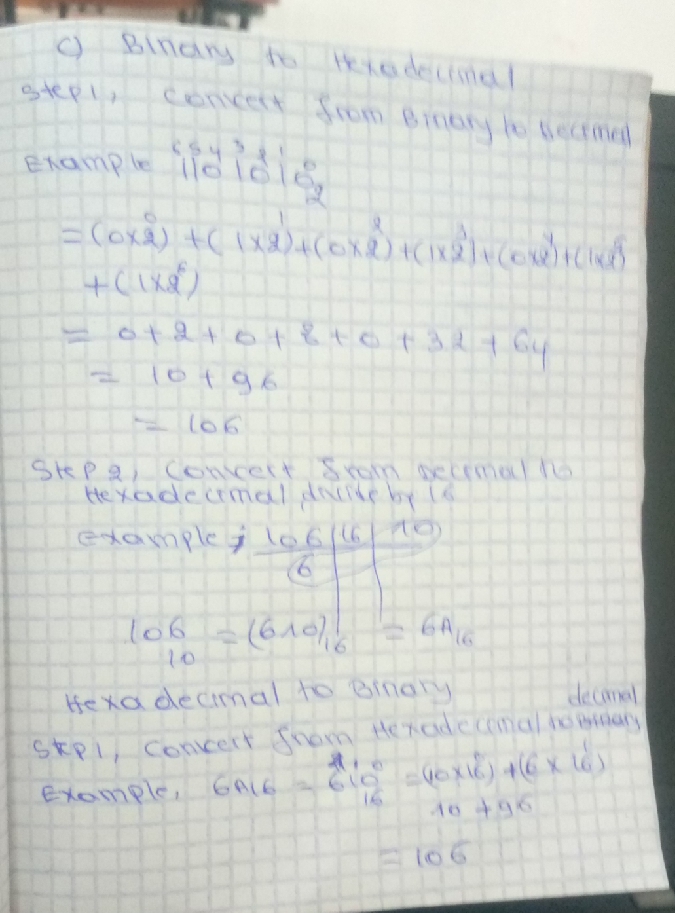 c) Binary to Hexadecimal
Step1, convert from Binary to Decimal
Example 1101010₂
6 5 4 3 2 1 0
= (0x2⁰) + (1x2¹) + (0x2²) + (1x2³) + (0x2⁴) + (1x2⁵)
+ (1x2⁶)
= 0 + 2 + 0 + 8 + 0 + 32 + 64
= 10 + 96
= 106
Step 2, convert from Decimal to
Hexadecimal, divide by 16
Example; 106 | 16 | 10
6
106₁₀ = (610)₁₆ = 6A₁₆
Hexadecimal to Binary
decimal
Step1, convert from Hexadecimal to Binary
Example, 6A16 = 6¹10⁰₁₆ = (10x16⁰) + (6x16¹)
10 + 96
= 106